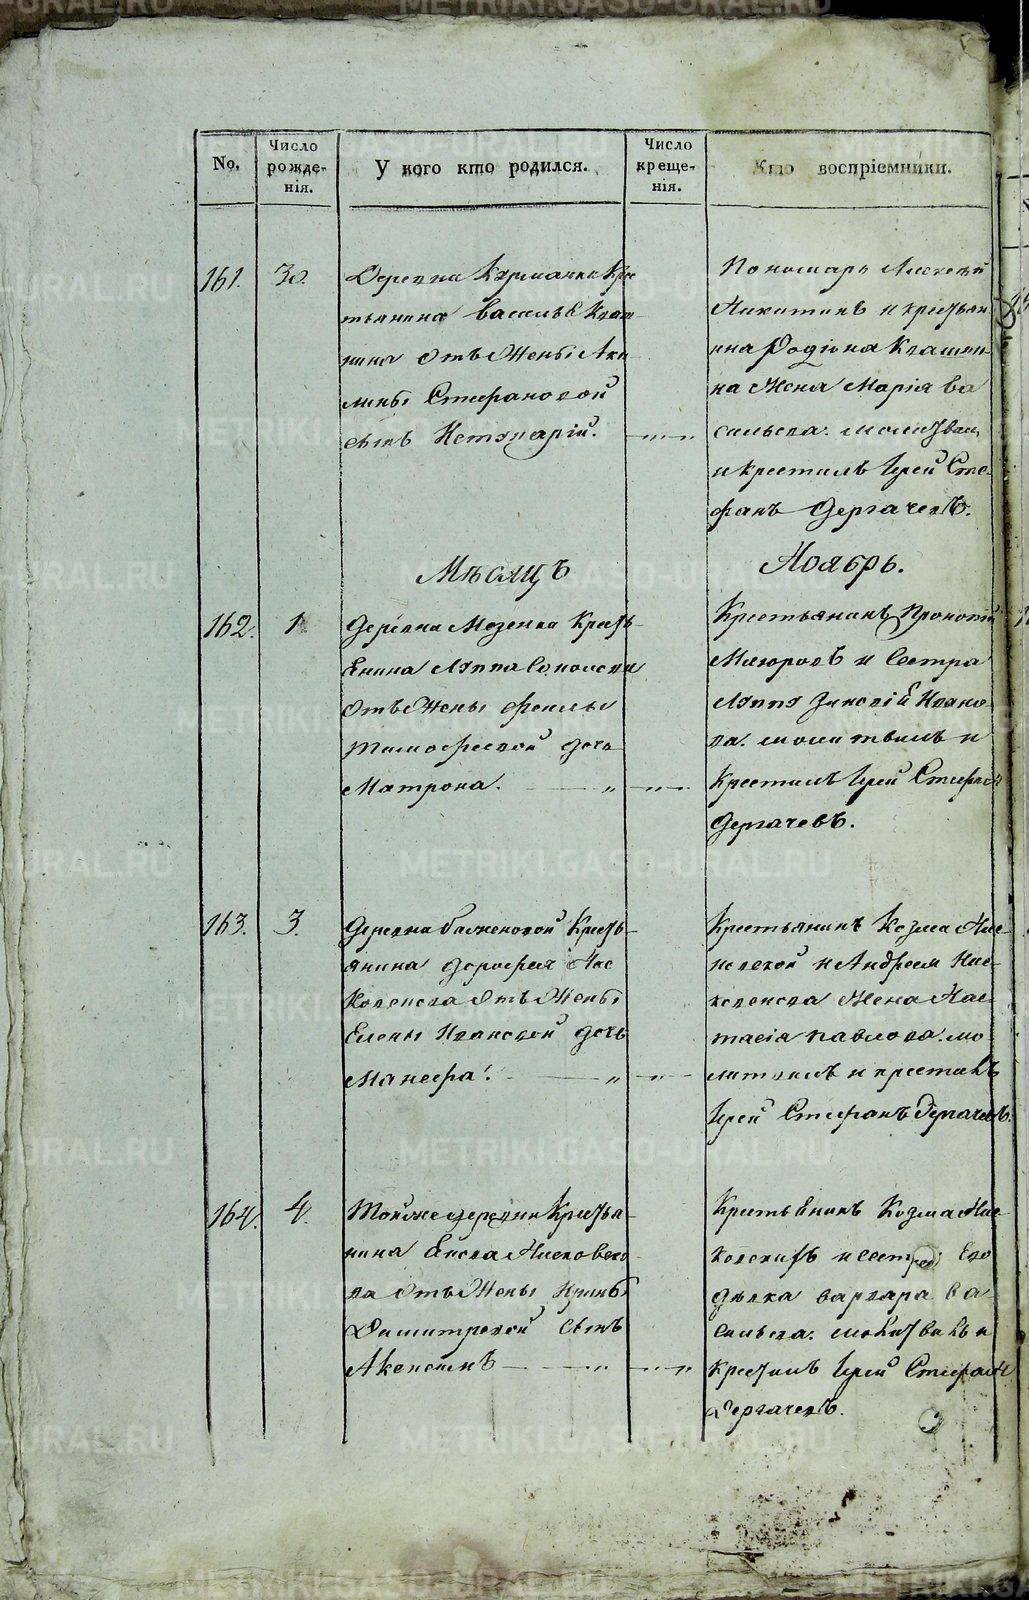 No.
Число рожде-нія.
У кого кто родился.
Число креще-нія.
Кто воспріемники.
161.
30.
Деревни Кярманки Кре
тьянина Василья Квам
нина отъ Жены Аки
лины Стефановой
сынъ Нетукарій.
Пономарь Алексѣй
Никитинъ и крестьян
ина Родіона Квашни-
на Жена Марія Ва
сильева. молитвал
и крестилъ Іерей Сте-
фанъ Дергачевъ.
Мѣсяцъ
Ноябрь.
162.
1
Деревни Мезенки Кресть
Енина Луппа
отъ Жены Феклы
Тимофеевой дочь
Матрона.
Крестьянинъ
и Сестра
Ивано-
ва. молитвилъ и
Крестилъ Іерей Стефан
Дергачевъ.
163.
3.
Деревни баженовой Кресть-
янина Дорофея Мас
коленсва отъ Жены
Елены Ивановой дочь
Манефа.
Крестьянинъ Козма Мас-
и Андрея Мас-
Жена Нас-
тасія Павлова. мо
литвилъ и крестилъ
Іерей Стефанъ Дергачевъ.
164.
4.
Тойже деревни Крестья-
нина
отъ Жены Ирины
Димитревой сынъ
Авксентъ
Крестьенинъ Козма Мас-
и сестра Его
дѣвка варвара Ва
сильева. молитвилъ и
крестилъ Іерей Стефанъ
Дергачевъ.
METRIKI.GASO-URAL.RU